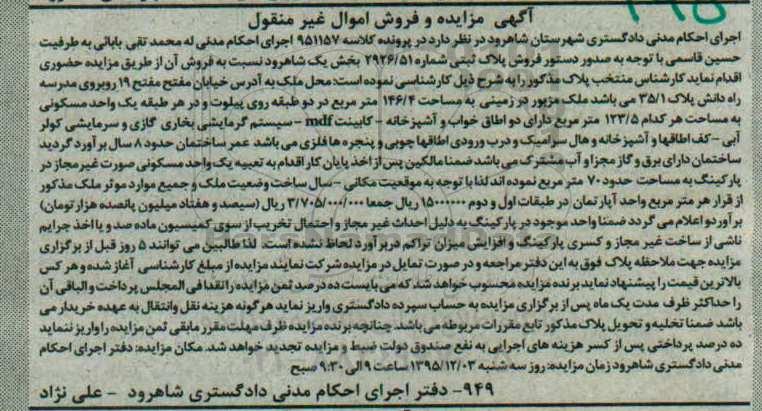 آگهی مزایده و فروش اموال غیر منقول
اجرای احکام مدنی دادگستری شهرستان شاهرود در نظر دارد در پرونده کلاسه ۹۵۱۱۵۷ اجرای احکام مدنی له محمد تقی بابائی به طرفیت
حسین قاسمی با توجه به صدور دستور فروش پلاک ثبتی شماره ۲۹۲۶/۵۱ بخش یک شاهرود نسبت به فروش آن از طریق مزایده حضوری
اقدام نماید کارشناس منتخب پلاک مذکور را به شرح ذیل کارشناسی نموده است: محل ملک به آدرس خیابان مفتح مفتح ۱۹ روبروی مدرسه
راه دانش پلاک ۳۵/۱ می باشد ملک مزبور در زمینی به مساحت ۱۴۶/۴ متر مربع در دو طبقه روی پیلوت و در هر طبقه یک واحد مسکونی
به مساحت هر کدام ۱۲۳/۵ متر مربع دارای دو اطاق خواب و آشپزخانه - کابینت mdf - سیستم گرمایشی بخاری گازی و سرمایشی کولر
آبی - کف اطاقها و آشپزخانه و هال سرامیک و درب ورودی اطاقها چوبی و پنجره ها فلزی می باشد عمر ساختمان حدود ۸ سال برآورد گردید
ساختمان دارای برق و گاز مجزا و آب مشترک می باشد ضمنا مالکین پس از اخذ پایان کار اقدام به تعبیه یک واحد مسکونی صورت غیر مجاز در
پارکینگ به مساحت حدود ۷۰ متر مربع نموده اند لذا با توجه به موقعیت مکانی - سال ساخت وضعیت ملک و جمیع موارد موثر ملک مذکور
از قرار هر متر مربع واحد آپارتمان در طبقات اول و دوم ۱۵۰۰۰۰۰۰ ریال جمعا ۳/۷۰۵/۰۰۰/۰۰۰ ریال (سیصد و هفتاد میلیون پانصده هزار تومان)
برآورد و اعلام می گردد ضمنا واحد موجود در پارکینگ به دلیل احداث غیر مجاز و احتمال تخریب از سوی کمیسیون ماده صد و یا اخذ جرایم
ناشی از ساخت غیر مجاز و کسری پارکینگ و افزایش میزان تراکم در برآورد لحاظ نشده است. لذا طالبین می توانند ۵ روز قبل از برگزاری
مزایده جهت ملاحظه پلاک فوق به این دفتر مراجعه و در صورت تمایل در مزایده شرکت نمایند مزایده از مبلغ کارشناسی آغاز شده و هر کس
بالاترین قیمت را پیشنهاد نماید برنده مزایده محسوب خواهد شد که می بایست ده درصد ثمن مزایده را نقدا فی المجلس پرداخت و الباقی آن
را حداکثر ظرف مدت یک ماه پس از برگزاری مزایده به حساب سپرده دادگستری واریز نماید هرگونه هزینه نقل وانتقال به عهده خریدار می
باشد ضمنا تخلیه و تحویل پلاک مذکور تابع مقررات مربوطه می باشد. چنانچه برنده مزایده ظرف مهلت مقرر مابقی ثمن مزایده را واریز ننماید
ده درصد پرداختی پس از کسر هزینه های اجرایی به نفع صندوق دولت ضبط و مزایده تجدید خواهد شد. مکان مزایده: دفتر اجرای احکام
مدنی دادگستری شاهرود زمان مزایده: روز سه شنبه ۱۳۹۵/۱۲/۰۳ ساعت ۹ الی ۹:۳۰ صبح
۹۴۹- دفتر اجرای احکام مدنی دادگستری شاهرود - علی نژاد